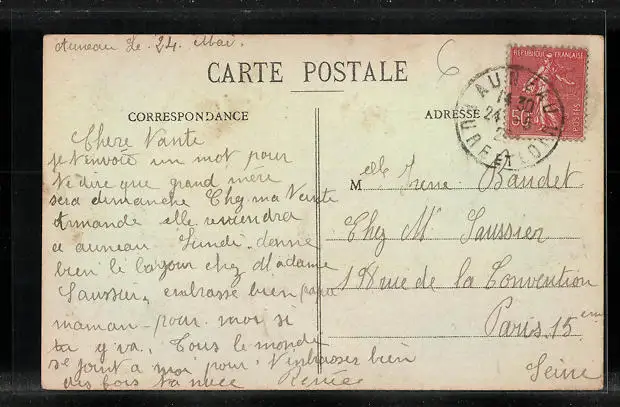 Auneau Le. 24. Mai.
CARTE POSTALE
CORRESPONDANCE
Chere Tante
je t'envoie un mot pour
te dire que grand mère
sera dimanche Chez ma Tante
Armande elle reviendra
a auneau Lundi. donne
bien le bonjour chez Madame
Saussier, embrasse bien papa
maman pour moi si
ta y va. Tous le monde
se joint a moi pour t'embrasser bien
des fois ta niece Renée
ADRESSE
REPUBLIQUE FRANÇAISE
50
POSTES
AUNEAU
14 30
24
EURE ET LOIR
6
Melle Irene Baudet
Chez Mr Saussier
198 rue de la Convention
Paris. 15eme
Seine